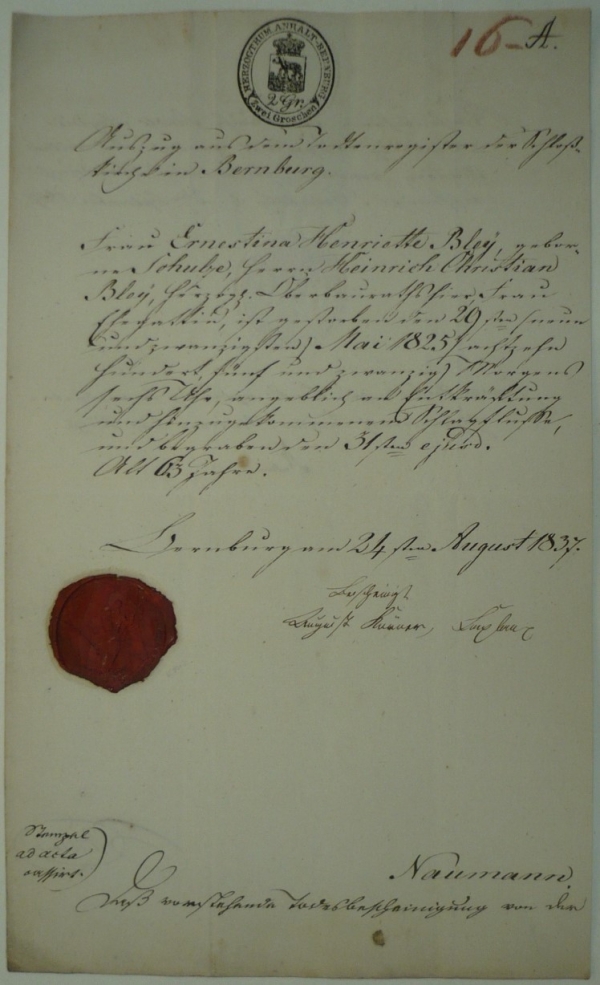 HERZOGTHUM ANHALT-BERNBURG
2 Gr.
Zwei Groschen
16 A.
Auszug aus dem Todtenregister der Schloß-
kirche in Bernburg.
Frau Ernestina Henriette Bley, gebor-
ne Schulze, Herrn Heinrich Christian
Bley, Herzogl. Oberbauraths hier, Frau
Ehegattin, ist gestorben den 29sten (neun
und zwanzigsten) Mai 1825 (achtzehn
hundert, fünf und zwanzig) Morgens
sechs Uhr, angeblich an Entkräftung
und hinzugekommenem Schlagflusse,
und begraben den 31sten ejusd.
Alt 63 Jahre.
Bernburg am 24sten August 1837.
bescheinigt
August
Stempel
ad acta
cassirt.
Naumann.
Daß vorstehende Todesbescheinigung von der